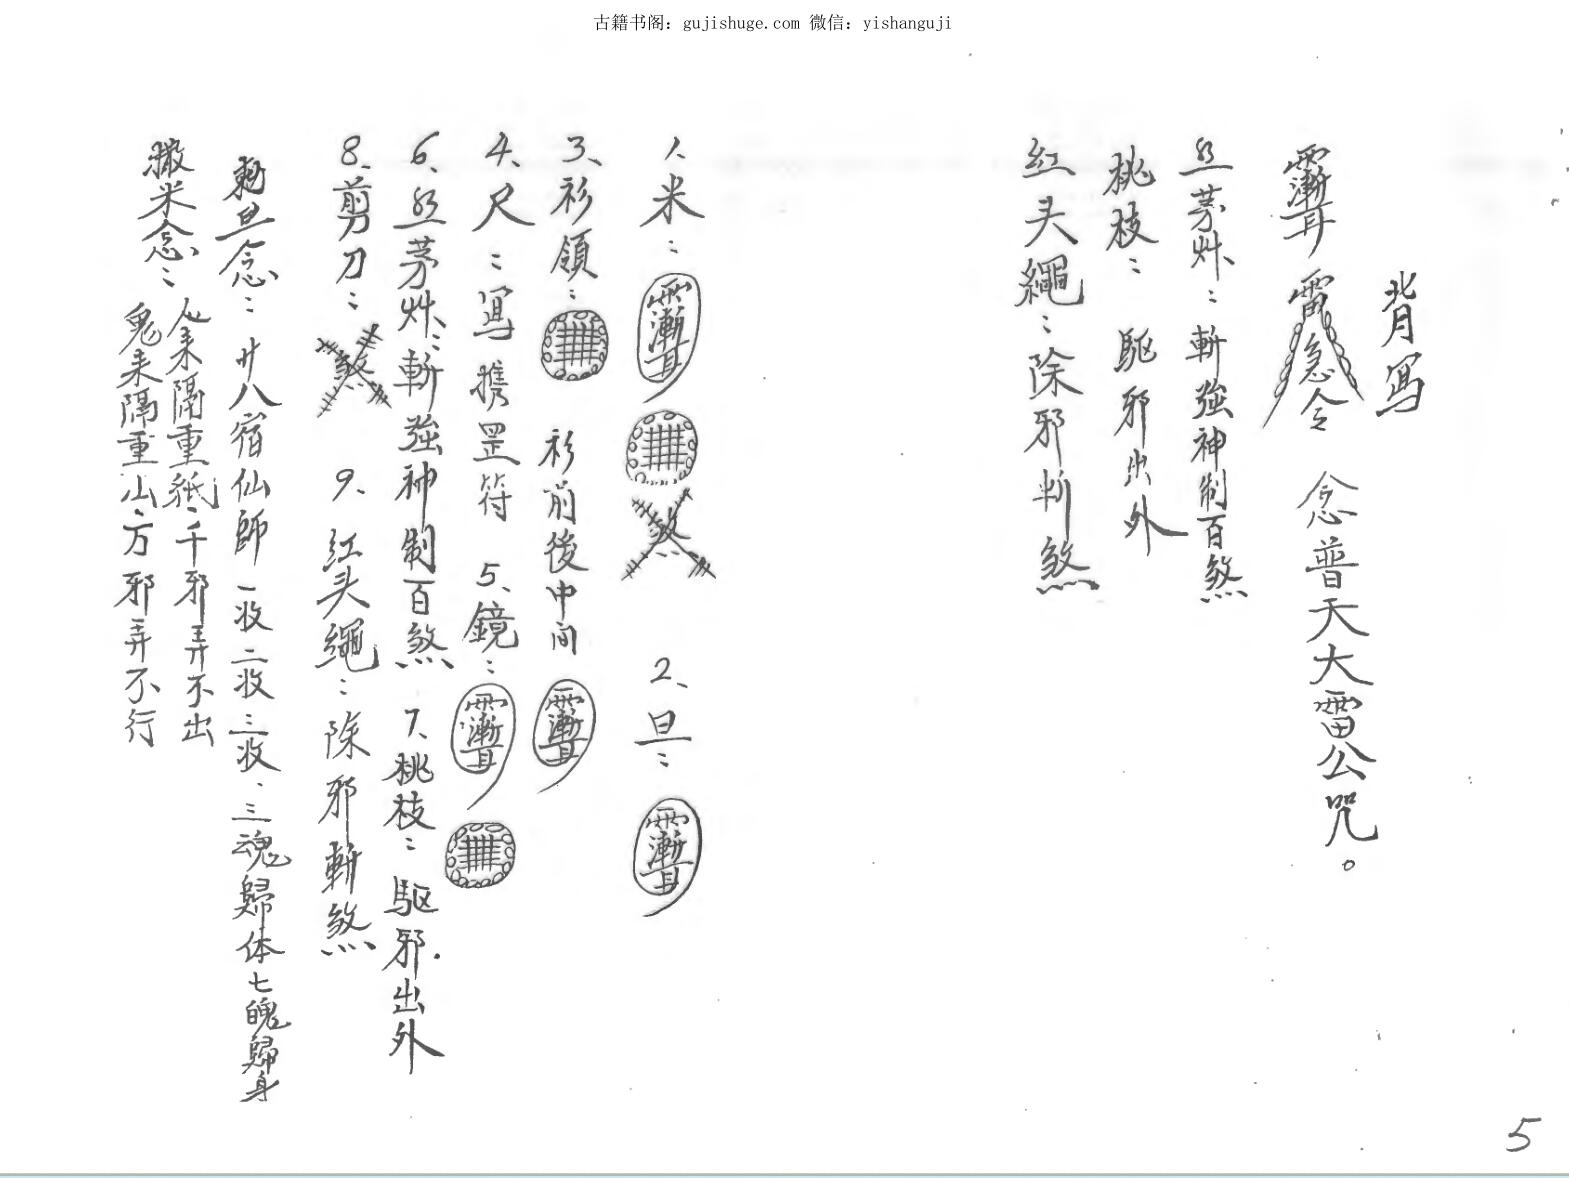 古籍书阁：gujishuge.com 微信：yishanguji
背写
雷急令 念普天大雷公咒。
丝茅艸：斬強神制百煞
桃枝：駆邪出外
红头繩：除邪斬煞
1、米： 煞 2、旦：
3、衫領： 衫前後中间
4、尺：写携罡符 5、鏡：
6、丝茅艸：斬強神制百煞 7、桃枝：駆邪出外
8、剪刀：煞 9、红头繩：除邪斬煞
勅旦念：廿八宿仙師一收二收三收、三魂歸体七魄歸身
撒米念：人来隔重紙、千邪弄不出
鬼来隔重山、万邪弄不行
5